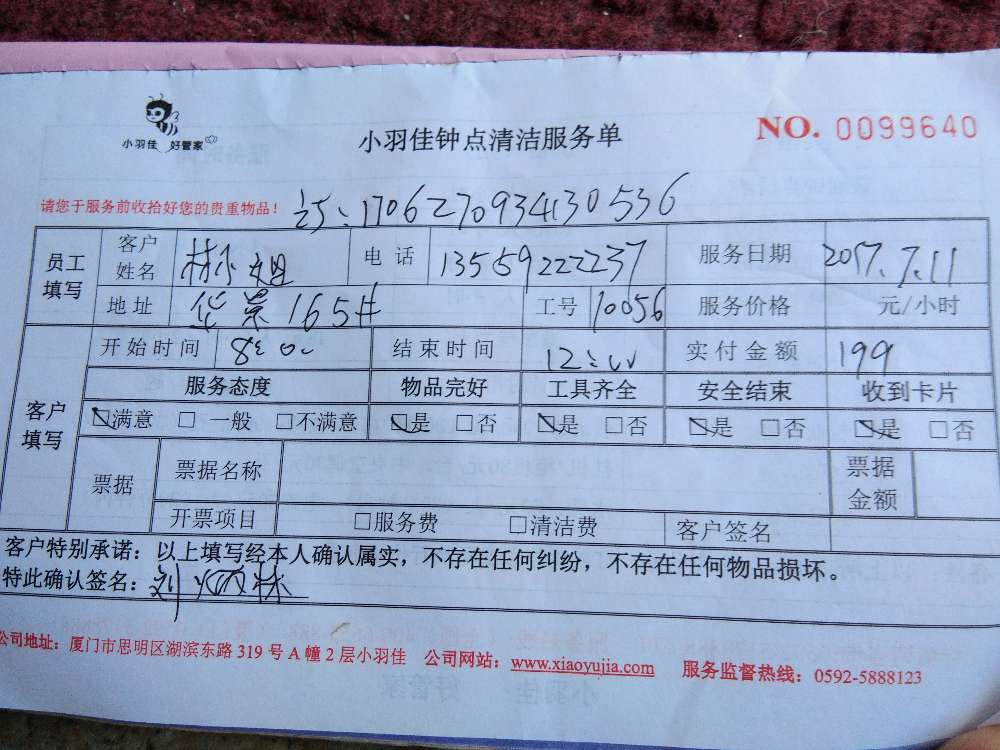 小羽佳 好管家
小羽佳钟点清洁服务单
NO. 0099640
请您于服务前收拾好您的贵重物品!
1706270934130536
员工填写 客户姓名 林小姐 电话 13559222237 服务日期 2017.7.11
地址 华景165# 工号 10056 服务价格 元/小时
客户填写 开始时间 8:00 结束时间 12:00 实付金额 199
服务态度 物品完好 工具齐全 安全结束 收到卡片
☑满意 □一般 □不满意 ☑是 □否 ☑是 □否 ☑是 □否 ☑是 □否
票据 票据名称 票据金额
开票项目 □服务费 □清洁费 客户签名
客户特别承诺：以上填写经本人确认属实，不存在任何纠纷，不存在任何物品损坏。
特此确认签名：刘 林
公司地址：厦门市思明区湖滨东路 319 号 A 幢 2 层小羽佳 公司网站：www.xiaoyujia.com 服务监督热线：0592-5888123